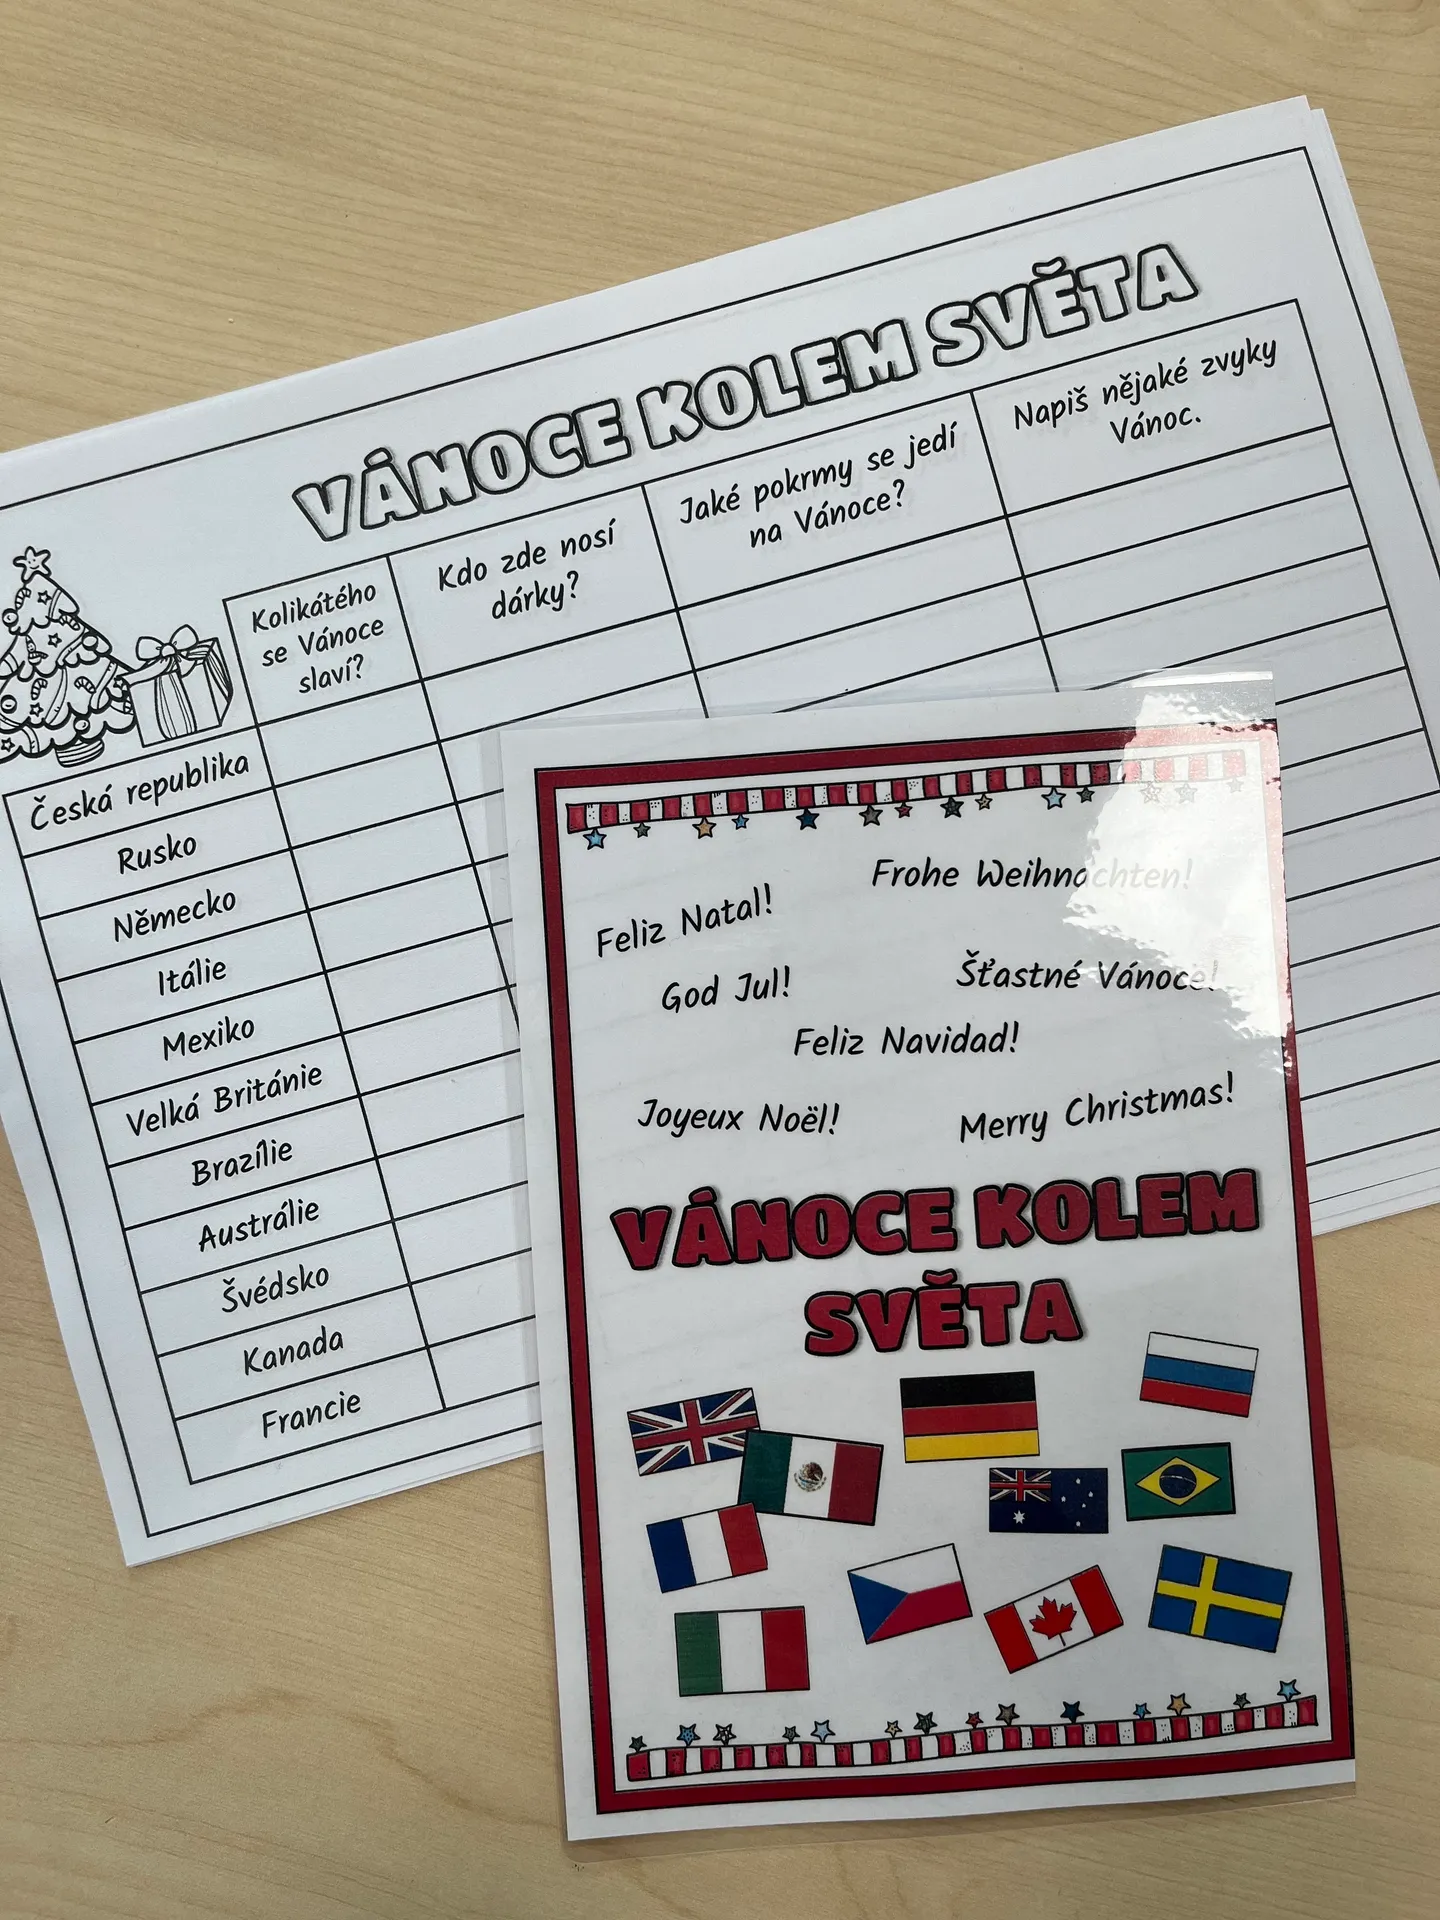 VÁNOCE KOLEM SVĚTA
Kolikátého
se Vánoce
slaví?
Kdo zde nosí
dárky?
Jaké pokrmy se jedí
na Vánoce?
Napiš nějaké zvyky
Vánoc.
Česká republika
Rusko
Německo
Itálie
Mexiko
Velká Británie
Brazílie
Austrálie
Švédsko
Kanada
Francie
Frohe Weihnachten!
Feliz Natal!
God Jul!
Šťastné Vánoce!
Feliz Navidad!
Joyeux Noël!
Merry Christmas!
VÁNOCE KOLEM
SVĚTA